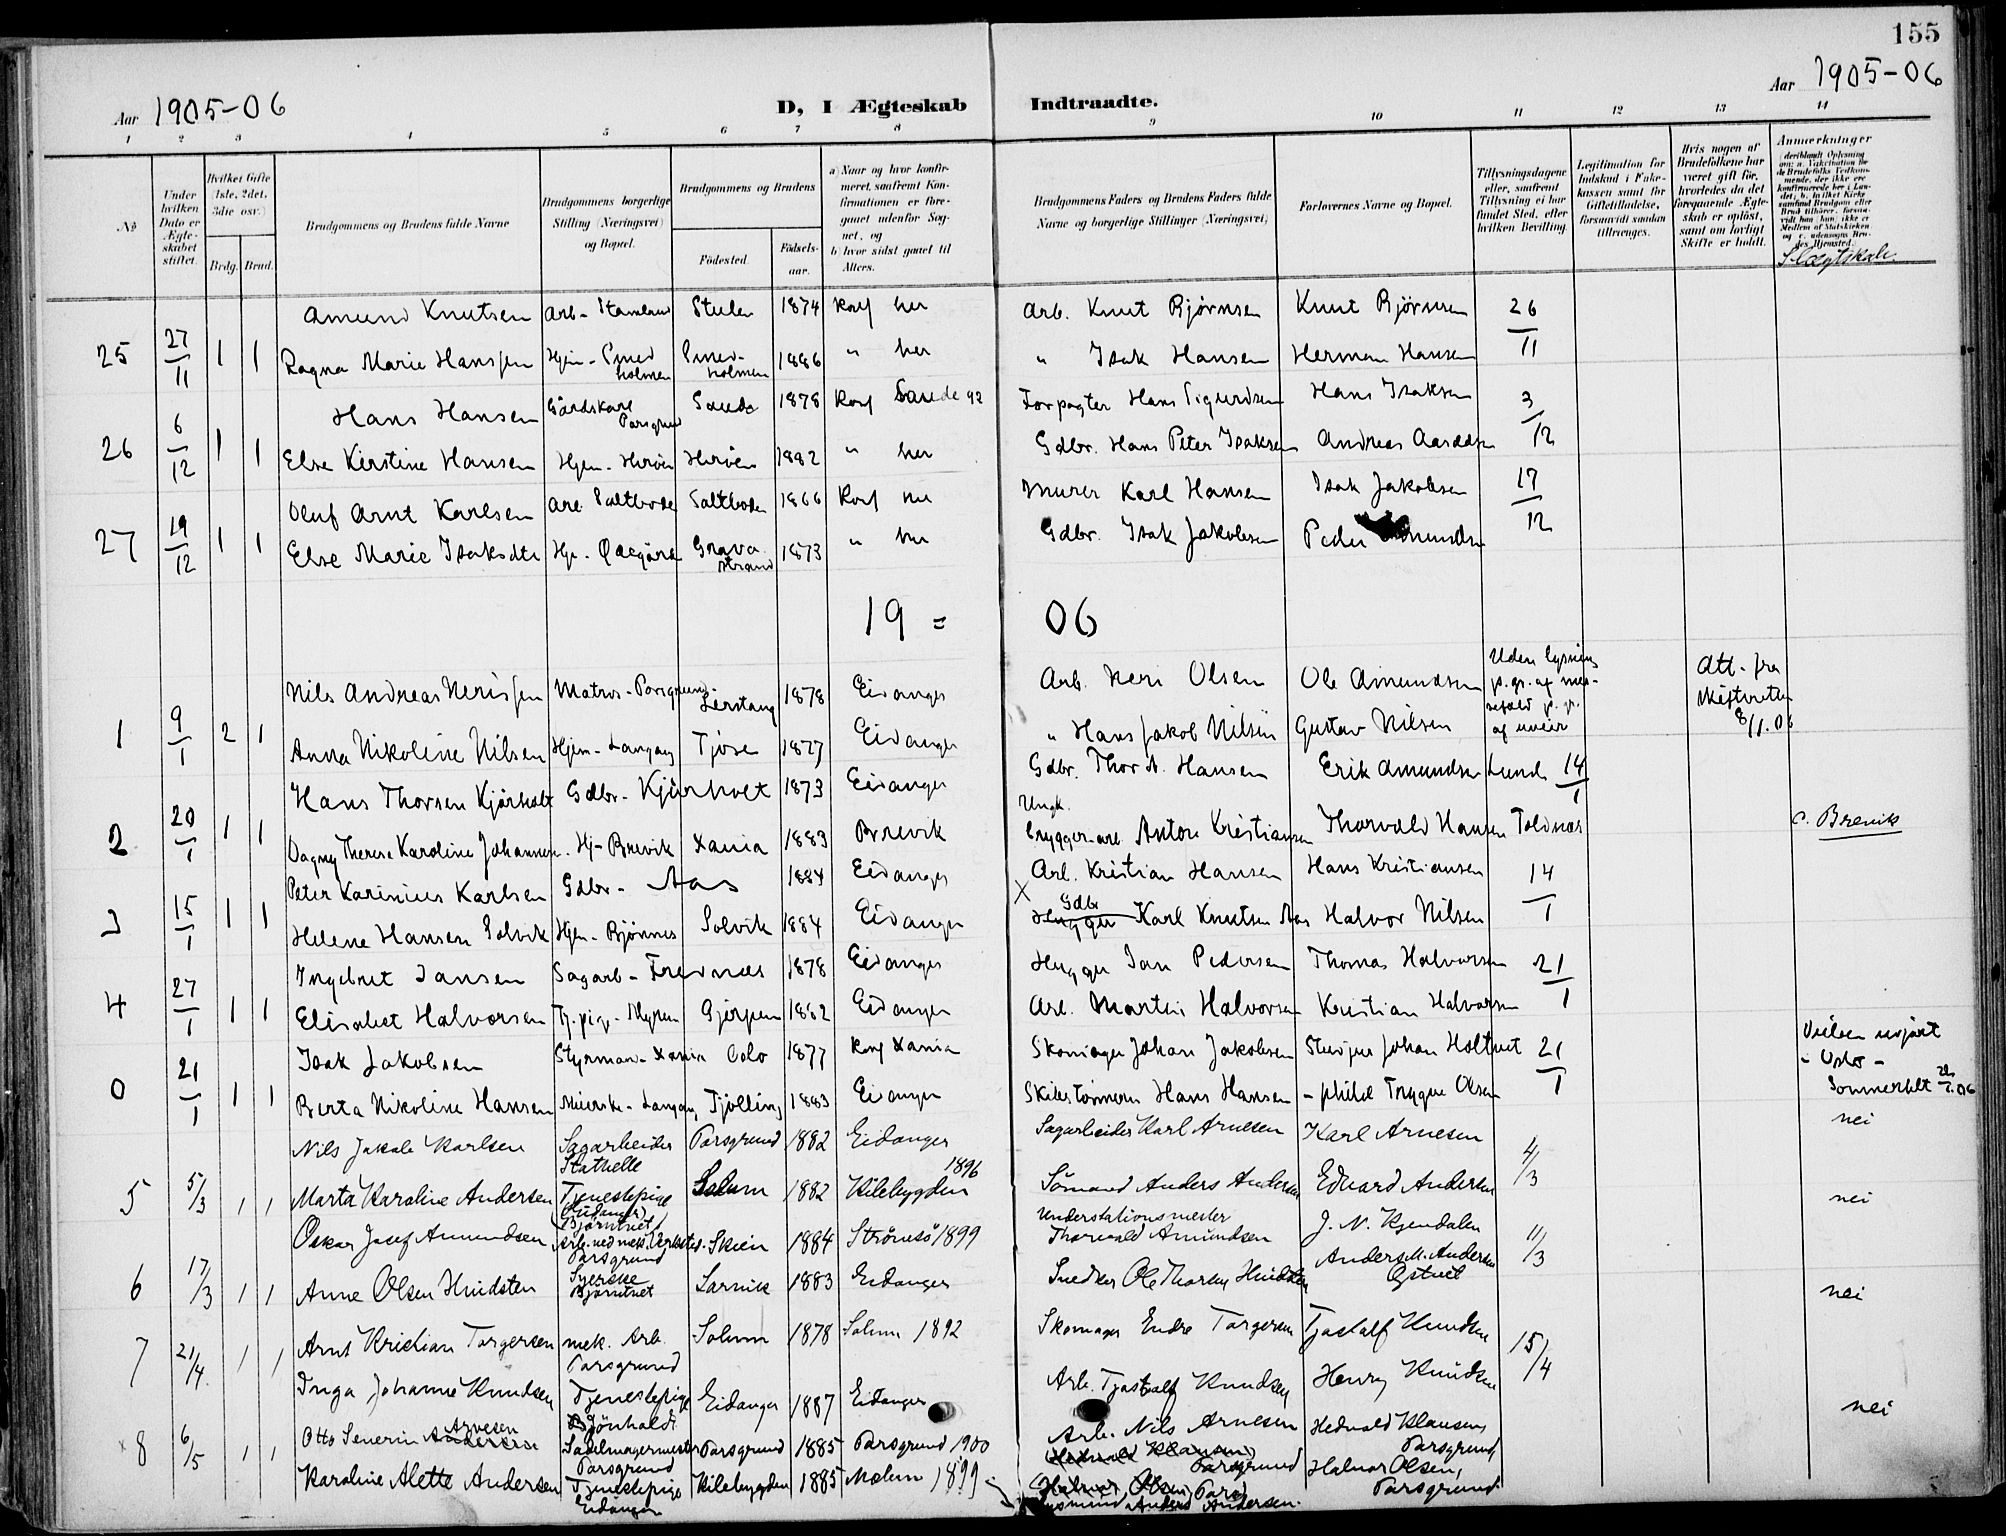 155
Aar 1905-06
D, I Ægteskab Indtraadte.
Aar 1905-06
1 2 3 4 5 6 7 8 9 10 11 12 13 14
No
Under hvilken Dato er Ægteskabet stiftet.
Hvilket Gifte (1ste, 2det, 3die osv.)
Brdg. Brud.
Brudgommens og Brudens fulde Navne
Brudgommens borgerlige Stilling (Næringsvei) og Bopæl.
Brudgommens og Brudens
Födested.
Födsels-aar.
a) Naar og hvor konfirmeret, saafremt Konfirmationen er foregaaet udenfor Sognet, og
b) hvor sidst gaaet til Alters.
Brudgommens Faders og Brudens Faders fulde Navne og borgerlige Stillinger (Næringsvei)
Forlovernes Navne og Bopæl.
Tillysningsdagene eller, saafremt Tillysning ei har fundet Sted, efter hvilken Bevilling.
Legitimation for Indskud i Enkekassen samt for Giftetilladelse, forsaavidt saadan tiltrænges.
Hvis nogen af Brudefolkene har været gift før, hvorledes da det foregaaende Ægteskab er opløst, samt om lovligt Skifte er holdt.
Anmærkninger
Slægtskab.
Amund Knutsen Arb- Stamland 1874 Konf her Arb. Knut Bjørnsen Knut Bjørnsen 26/11
25 27/11 1 1 Ragna Marie Hanssen Hjem- Smedholmen Smedholmen 1886 " her " Isak Hansen Herman Hansen
Hans Hansen Gårdskarl Porsgrund 1878 Konf 92 Forpagter Hans Sigurdsen Hans Isaksen 3/12
26 6/12 1 1 Else Kirstine Hansen Hjem- Herøen Herøen 1882 " her Gdbr. Hans Peter Isaksen Andreas
Oluf Arnt Karlsen Arb Saltboden Saltboden 1866 Konf her Murer Karl Hansen Isak Jakobsen 17/12
27 19/12 1 1 Else Marie Isaksdtr Hje- Grava strand 1873 " her Gdbr. Isak Jakobsen Peder
19 = 06
Nils Andreas Nerissen Matros- Porsgrund- Lerstang 1878 Eidanger Arb. Neri Olsen Ole Amundsen Uden lysning Att. fra Skifteretten 8/1.06
1 9/1 2 1 Anna Nikoline Nilsen Hjem- Langang Tjøse 1877 Eidanger " Hans Jakob Nilsen Gustav Nilsen
Hans Thorsen Kjørholt Gdbr- Kjørholt 1873 Eidanger Gdbr. Thor N. Hansen Erik Amundsen Lund 14/1
2 20/1 1 1 Dagny Therese Karoline Johannesen. Hj- Brevik Xania 1883 Brevik Ungk. bryggeriarb. Anton Kristiansen Thorvald Hansen Toldnæs c. Brevik
Peter Karinius Karlsen Gdbr- Aas 1884 Eidanger Arb. Kristian Hansen Hans Kristiansen 14/1
3 15/1 1 1 Helene Hansen Solvik Hjem- Bjønnes Solvik 1884 Eidanger x Gdbr Hugger Karl Knutsen Aas Halvor Nilsen
Ingebret Jansen Sagarb- Frednæs 1878 Eidanger Hugger Jan Pedersen Thomas Halvorsen 21/1
4 27/1 1 1 Elisabet Halvorsen Tj.pig- Myren Gjerpen 1882 Eidanger Arb. Martin Halvorsen Kristian Halvorsen
Isak Jakobsen Styrmand- Xania Oslo 1877 Konf Xania Skomager Johan Jakobsen Johan Holtvet 21/1 Vielsen udført
0 21/1 1 1 Berta Nikoline Hansen Meierske- Langang Tjølling 1883 Eidanger Skibstømmerm Hans Hansen Trygve Olsen - Oslo - Sommerfelt 1.06
Nils Jakob Karlsen Sagarbeider Stathelle Porsgrund 1882 Eidanger Sagarbeider Karl Arnesen Karl Arnesen 4/3 nei
5 5/3 1 1 Marta Karoline Andersen Tjenestepige (Eidanger) Solum 1882 Kilebygden 1896 Sömand Anders Andersen Edvard Andersen nei
Oskar Josef Amundsen Arb. ved mek. Verksted. Porsgrund Skien 1884 Strömsö 1899 Understationsmester Thorvald Amundsen J. N. Kjendalen 11/3
6 17/3 1 1 Anne Olsen Hvidsten Syerske Björntvet Larvik 1883 Eidanger Snedker Ole Hvidsten Anders M. Andersen nei
7 21/4 1 1 Arnt Kristian Torgersen mek. Arb. Porsgrund Solum 1878 Solum 1892 Skomager Endre Torgersen Tjostolf Knudsen 15/4
Inga Johanne Knudsen Tjenestepige Eidanger 1887 Eidanger Arb. Tjostolf Knudsen Henry Knudsen
x 8 6/5 1 1 Otto Severin Andersen Arnesen Sadelmagermester Porsgrund Porsgrund 1885 Porsgrund 1900 Arb. Nils Arnesen (Hedvald Klausen) Porsgrund Hedvald Klausen, Porsgrund nei
Karoline Alette Andersen Tjenestepige Eidanger Kilebygden 1885 1899 (Halvor Olsen, Pors) Anders Andersen. Halvor Olsen, Porsgrund